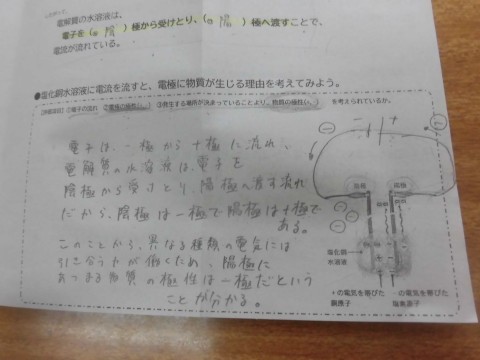 電解質の水溶液は、
電子を（ 陰 ）極から受けとり、（ 陽 ）極へ渡すことで、
電流が流れている。
●塩化銅水溶液に電流を流すと、電極に物質が生じる理由を考えてみよう。
①電子の流れ ②電極の極性(+,-) ③発生する場所が決まっていることより、物質の極性(+,-) を考えられているか。
電子は、一極から+極に流れ、
電解質の水溶液は、電子を
陰極から受けとり、陽極へ渡す流れ
だから、陰極は一極で陽極は+極で
ある。
このことから、異なる種類の電気には
引き合う力が働くため、陽極に
あつまる物質の極性は一極だという
ことが分かる。
- +
陰極 陽極
塩化銅
水溶液
+の電気を帯びた
銅原子
-の電気を帯びた
塩素原子